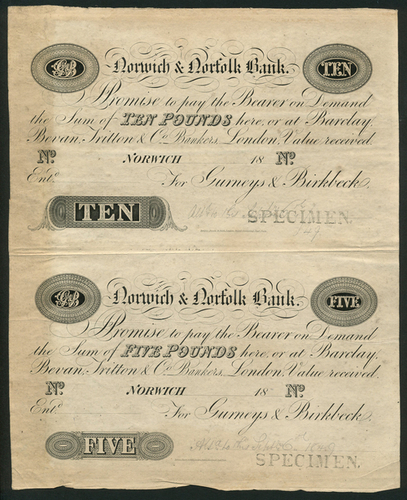 GB Norwich & Norfolk Bank. TEN
I Promise to pay the Bearer on Demand
the Sum of TEN POUNDS here, or at Barclay,
Bevan, Tritton & Co. Bankers, London, Value received.
No. NORWICH 18 No.
Entd. For Gurneys & Birkbeck,
TEN SPECIMEN.
GB Norwich & Norfolk Bank. FIVE
I Promise to pay the Bearer on Demand
the Sum of FIVE POUNDS here, or at Barclay,
Bevan, Tritton & Co. Bankers, London, Value received.
No. NORWICH 18 No.
Entd. For Gurneys & Birkbeck,
FIVE SPECIMEN.